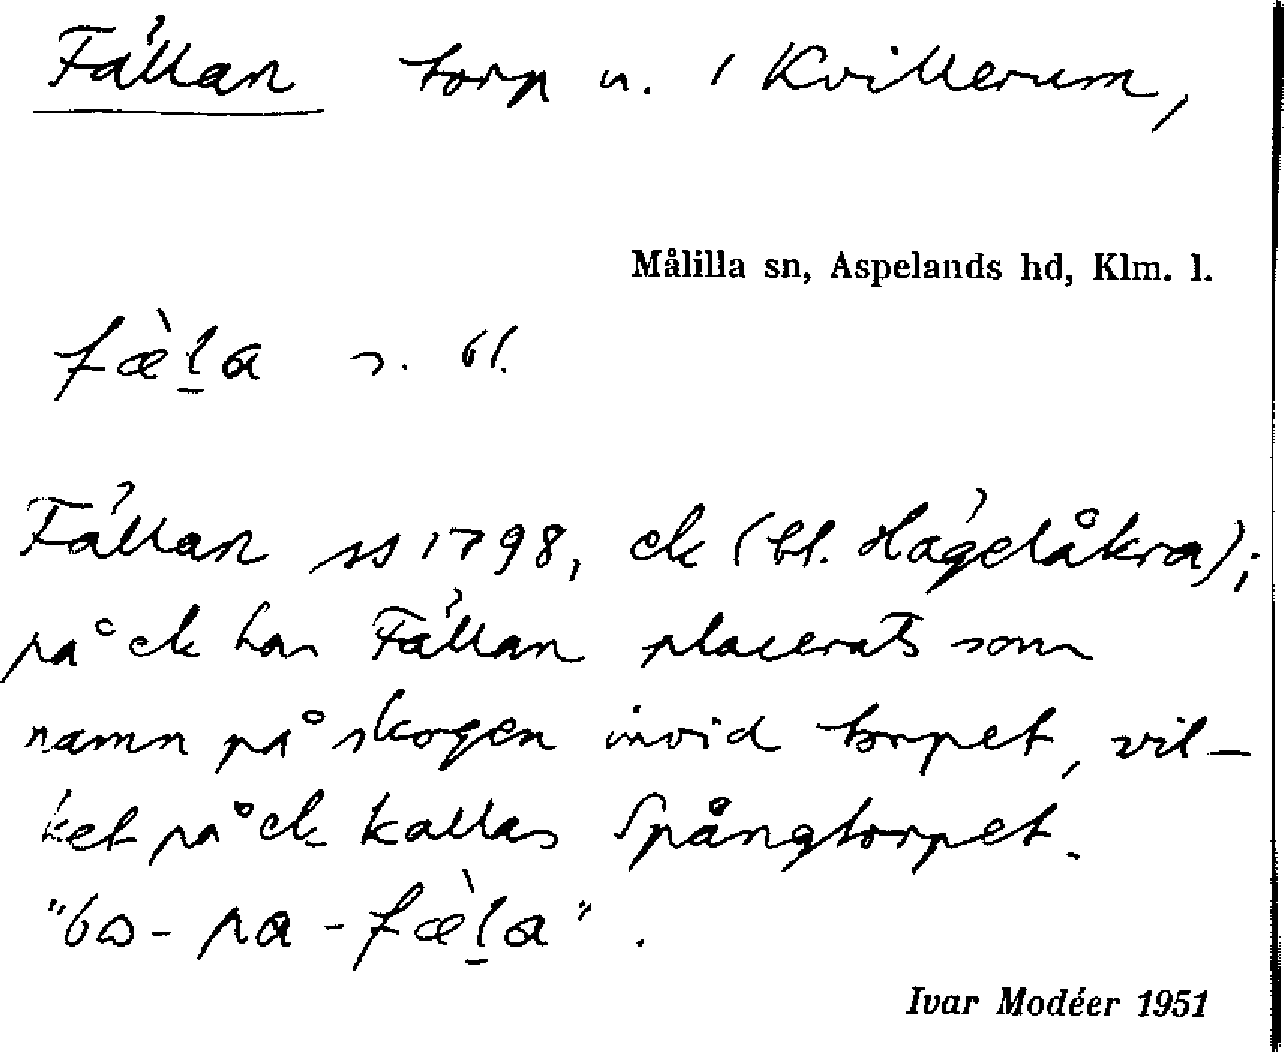 Fällan torp u. / Kvillerum,
Målilla sn, Aspelands hd, Klm. l.
fæ̀l̲a
Fällan ss 1798, ek (bl. Hägelåkra);
på ek har Fällan placerats som
namn på skogen invid torpet, vil-
ket på ek kallas Spångtorpet.
"bo - pa - fæ̀l̲a".
Ivar Modéer 1951